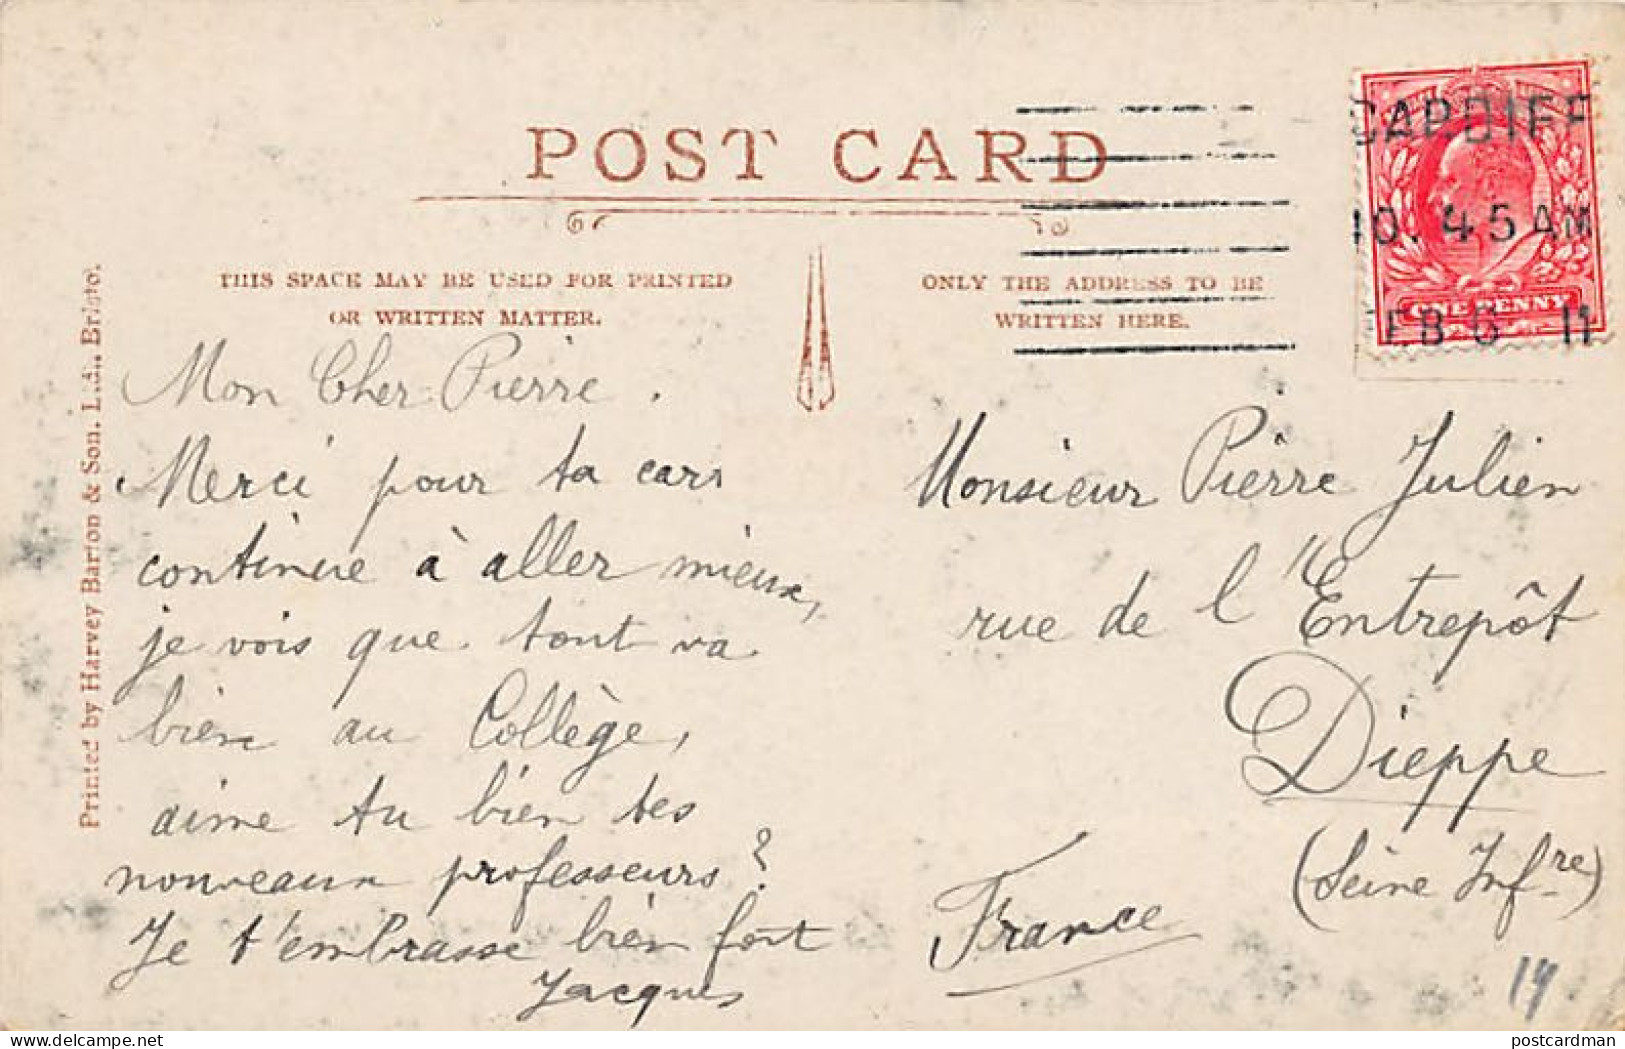 POST CARD
THIS SPACE MAY BE USED FOR PRINTED
OR WRITTEN MATTER.
ONLY THE ADDRESS TO BE
WRITTEN HERE.
CARDIFF
10.45 AM
FEB 6 11
ONE PENNY
Printed by Harvey Barton & Son. Ltd., Bristol.
Mon Cher Pierre.
Merci pour ta cart
continue à aller mieux,
je vois que tout va
bien au Collège,
aime tu bien tes
nouveaux professeurs?
Je t'embrasse bien fort
Jacques
Monsieur Pierre Julien
rue de l'Entrepôt
Dieppe
(Seine Infre)
France
14
postcardman